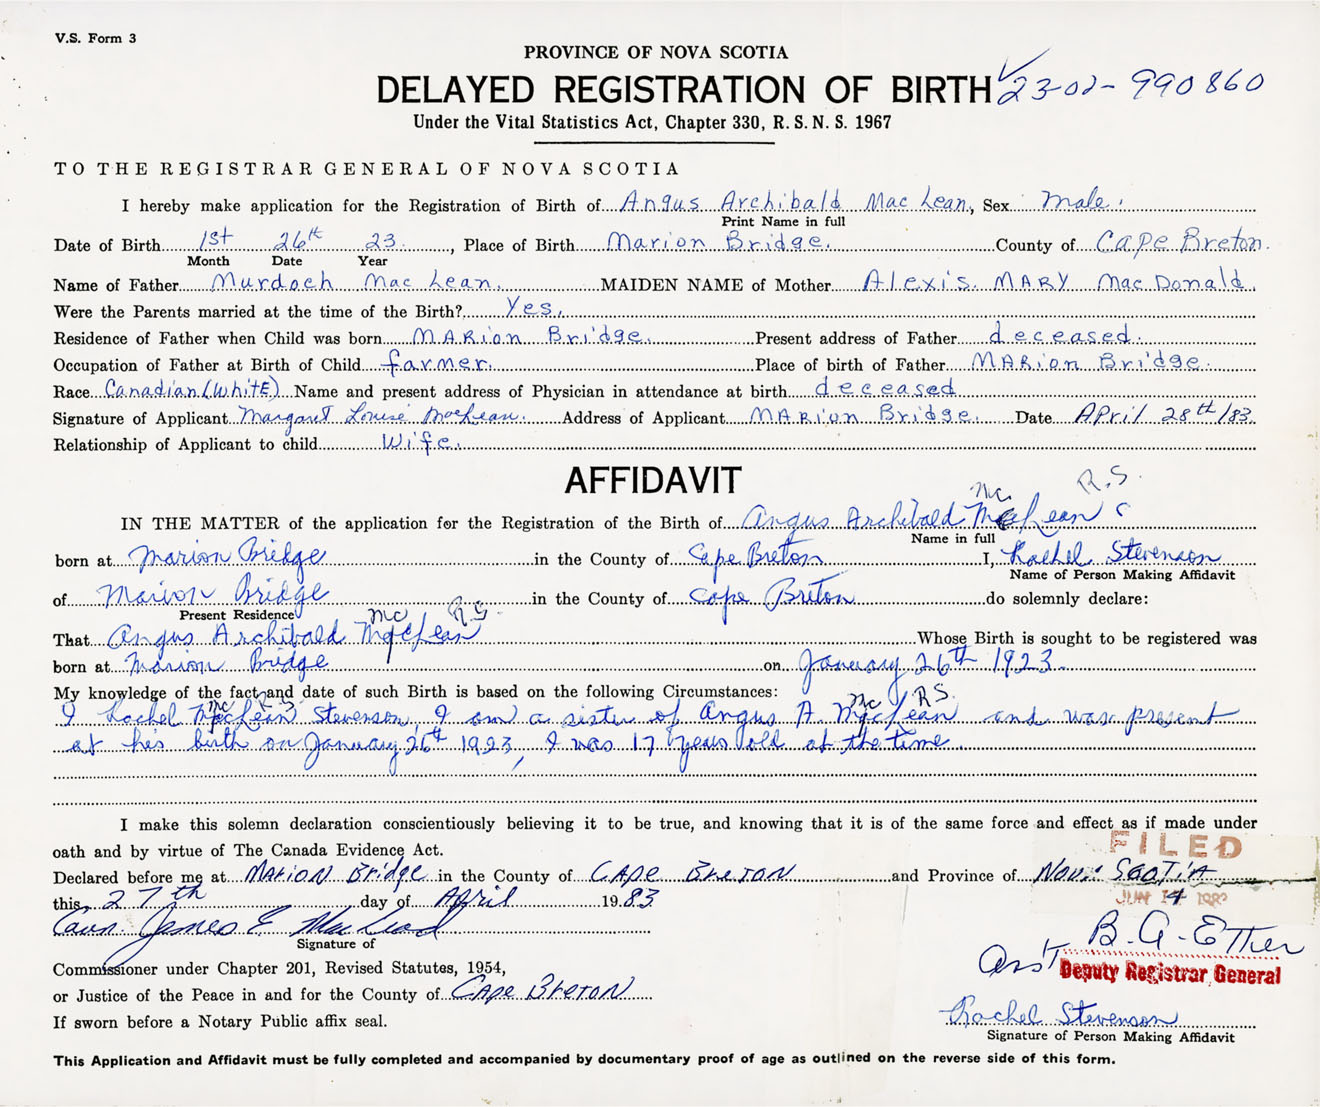 V.S. Form 3
PROVINCE OF NOVA SCOTIA
DELAYED REGISTRATION OF BIRTH 23-02-990860
Under the Vital Statistics Act, Chapter 330, R. S. N. S. 1967
TO THE REGISTRAR GENERAL OF NOVA SCOTIA
I hereby make application for the Registration of Birth of Angus Archibald Mac Lean, Sex Male.
Print Name in full
Date of Birth 1st 26th 23 , Place of Birth Marion Bridge. County of Cape Breton.
Month Date Year
Name of Father Murdoch Mac Lean. MAIDEN NAME of Mother Alexis. MARY Mac Donald.
Were the Parents married at the time of the Birth? Yes.
Residence of Father when Child was born MARion Bridge. Present address of Father deceased.
Occupation of Father at Birth of Child farmer. Place of birth of Father MARion Bridge.
Race Canadian (WhitE) Name and present address of Physician in attendance at birth deceased
Signature of Applicant Margaret Louise MacLean. Address of Applicant MARion Bridge. Date April 28th/83.
Relationship of Applicant to child Wife.
AFFIDAVIT
Mc R.S.
IN THE MATTER of the application for the Registration of the Birth of Angus Archibald MacLean
Name in full
born at Marion Bridge in the County of Cape Breton I, Rachel Stevenson
Name of Person Making Affidavit
of Marion Bridge in the County of Cape Breton do solemnly declare:
Present Residence Mc R.S
That Angus Archibald MacLean Whose Birth is sought to be registered was
born at Marion Bridge on January 26th 1923.
My knowledge of the fact and date of such Birth is based on the following Circumstances:
Mc R.S. Mc R.S.
I Rachel MacLean Stevenson, I am a sister of Angus A. MacLean and was present
at his birth on January 26th 1923, I was 17 years old at the time.
I make this solemn declaration conscientiously believing it to be true, and knowing that it is of the same force and effect as if made under
oath and by virtue of The Canada Evidence Act.
FILED
Declared before me at Marion Bridge in the County of Cape Breton and Province of Nova Scotia
this 27th day of April 19 83
JUN 14
Coun. James E. MacLeod
Signature of
B. A. Ether
Ass't Deputy Registrar General
Commissioner under Chapter 201, Revised Statutes, 1954,
or Justice of the Peace in and for the County of Cape Breton
If sworn before a Notary Public affix seal.
Rachel Stevenson
Signature of Person Making Affidavit
This Application and Affidavit must be fully completed and accompanied by documentary proof of age as outlined on the reverse side of this form.